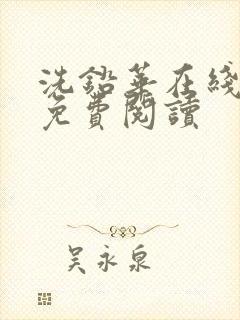 洗鉛華在綫
免費閱讀
吳永泉